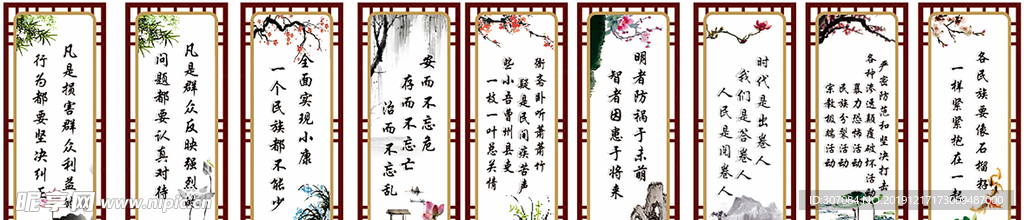 凡是损害群众利益
行为都要坚决纠
凡是群众反映强烈
问题都要认真对待
全面实现小康
一个民族都不能少
安而不忘危
存而不忘亡
治而不忘乱
衙斋卧听萧萧竹
疑是民间疾苦声
些小吾曹州县吏
一枝一叶总关情
明者防祸于未萌
智者因患于将来
时代是出卷人
我们是答卷人
人民是阅卷人
严密防范和坚决打击
各种渗透颠覆破坏活动
暴力恐怖活动
民族分裂活动
宗教极端活动
各民族要像石榴籽
一样紧紧抱在一起
昵享网 www.nipic.cn
ID:30708410 NO:20191217173009487000